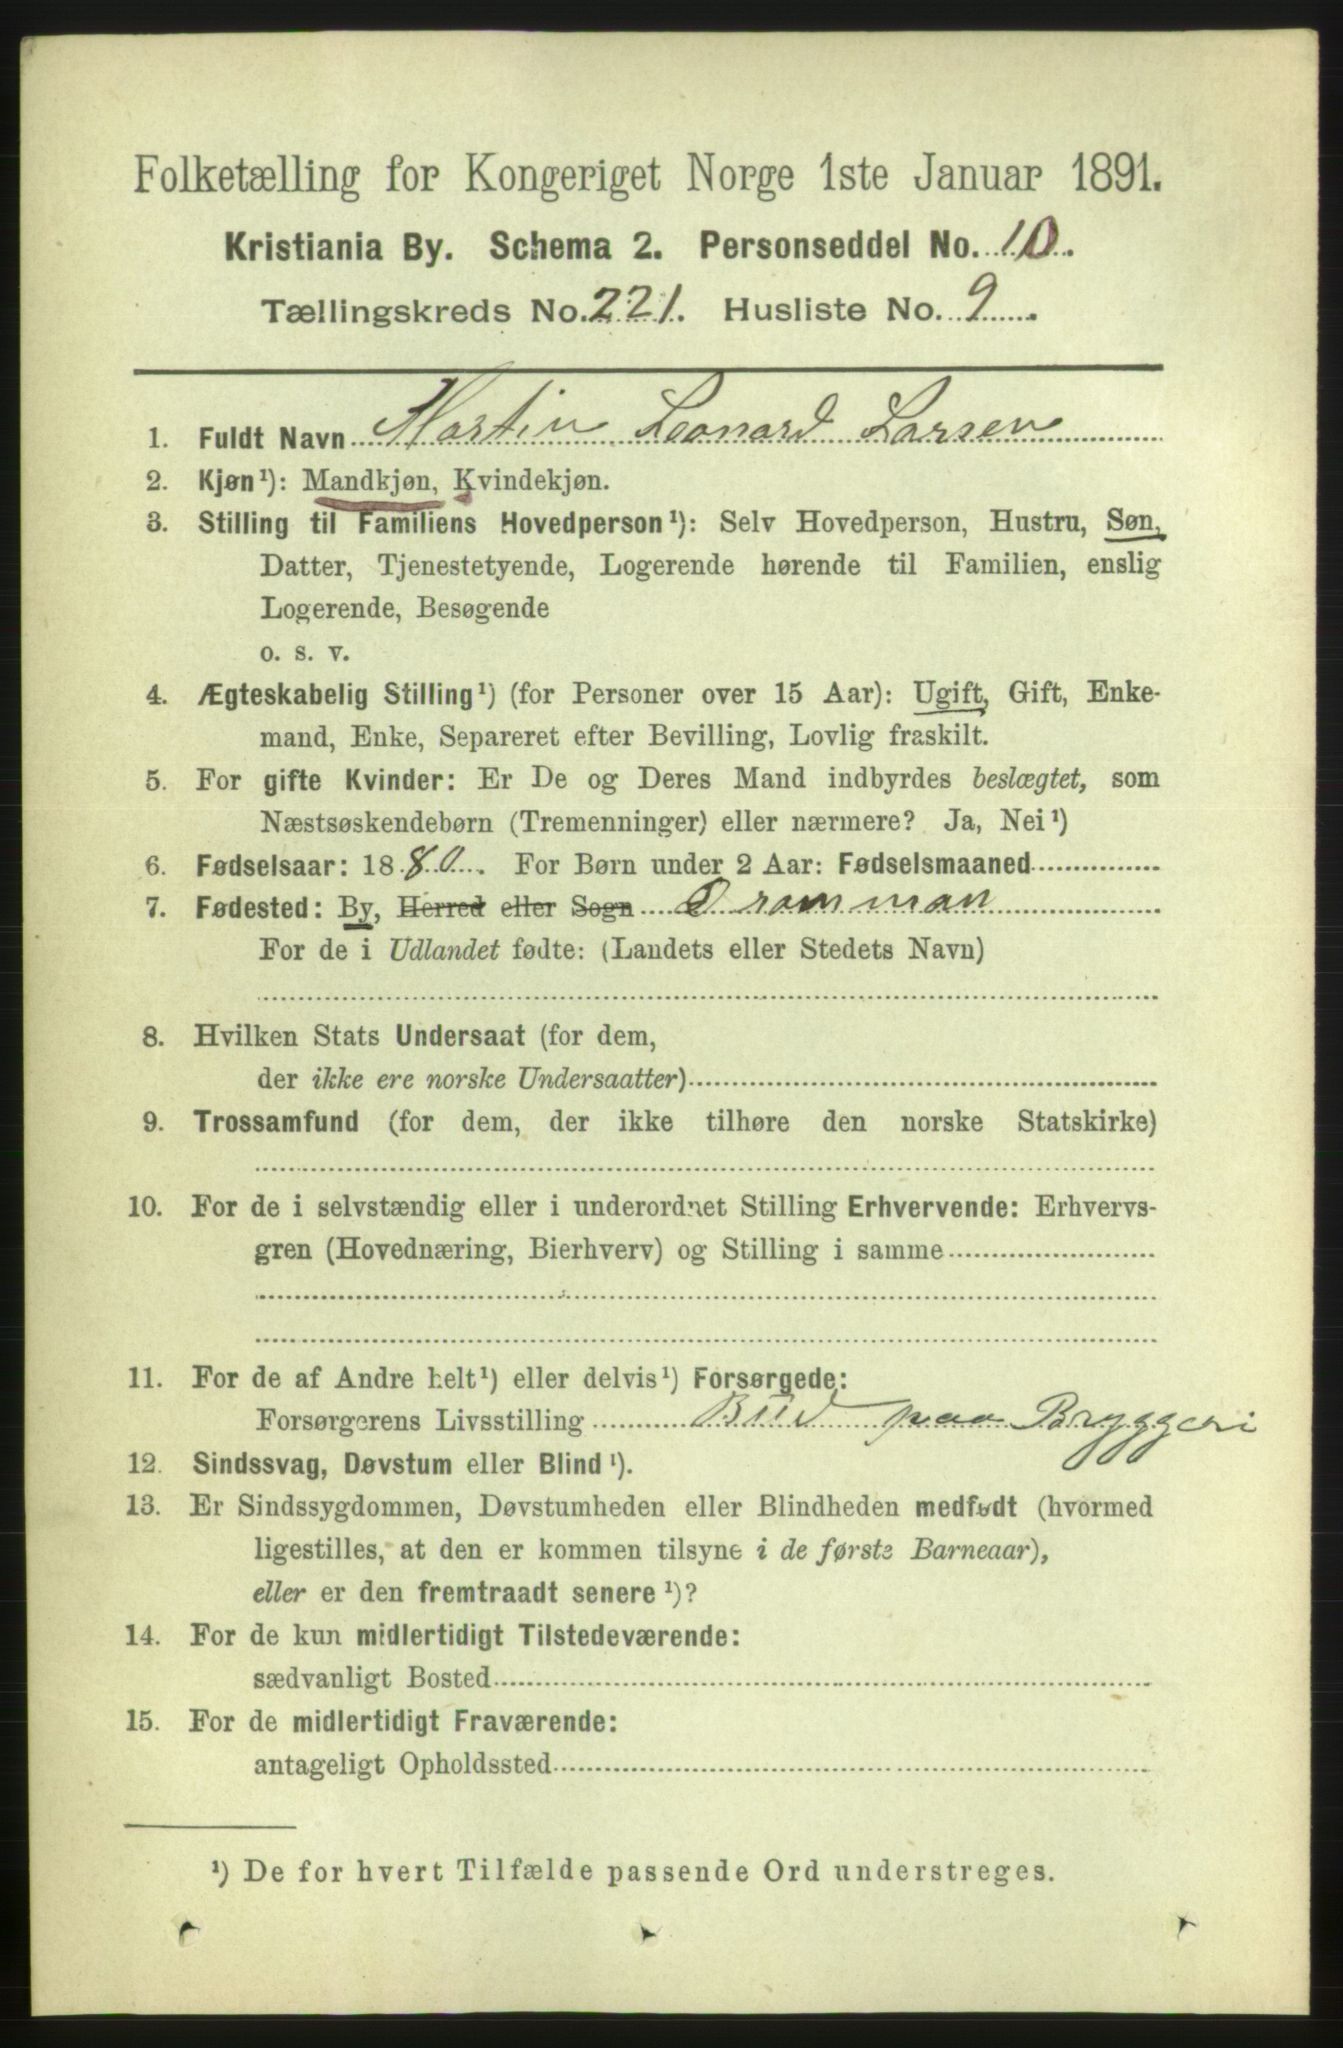 Folketælling for Kongeriget Norge 1ste Januar 1891.
Kristiania By. Schema 2. Personseddel No. 10.
Tællingskreds No. 221. Husliste No. 9.
1. Fuldt Navn Martin Leonard Larsen
2. Kjøn¹): Mandkjøn, Kvindekjøn.
3. Stilling til Familiens Hovedperson¹): Selv Hovedperson, Hustru, Søn,
Datter, Tjenestetyende, Logerende hørende til Familien, enslig
Logerende, Besøgende
o. s. v.
4. Ægteskabelig Stilling¹) (for Personer over 15 Aar): Ugift, Gift, Enke-
mand, Enke, Separeret efter Bevilling, Lovlig fraskilt.
5. For gifte Kvinder: Er De og Deres Mand indbyrdes beslægtet, som
Næstsøskendebørn (Tremenninger) eller nærmere? Ja, Nei¹)
6. Fødselsaar: 1880. For Børn under 2 Aar: Fødselsmaaned
7. Fødested: By, Herred eller Sogn Dramman
For de i Udlandet fødte: (Landets eller Stedets Navn)
8. Hvilken Stats Undersaat (for dem,
der ikke ere norske Undersaatter)
9. Trossamfund (for dem, der ikke tilhøre den norske Statskirke)
10. For de i selvstændig eller i underordnet Stilling Erhvervende: Erhvervs-
gren (Hovednæring, Bierhverv) og Stilling i samme
11. For de af Andre helt¹) eller delvis¹) Forsørgede:
Forsørgerens Livsstilling Bud paa Bryggeri
12. Sindssvag, Døvstum eller Blind¹).
13. Er Sindssygdommen, Døvstumheden eller Blindheden medfødt (hvormed
ligestilles, at den er kommen tilsyne i de første Barneaar),
eller er den fremtraadt senere¹)?
14. For de kun midlertidigt Tilstedeværende:
sædvanligt Bosted
15. For de midlertidigt Fraværende:
antageligt Opholdssted
¹) De for hvert Tilfælde passende Ord understreges.